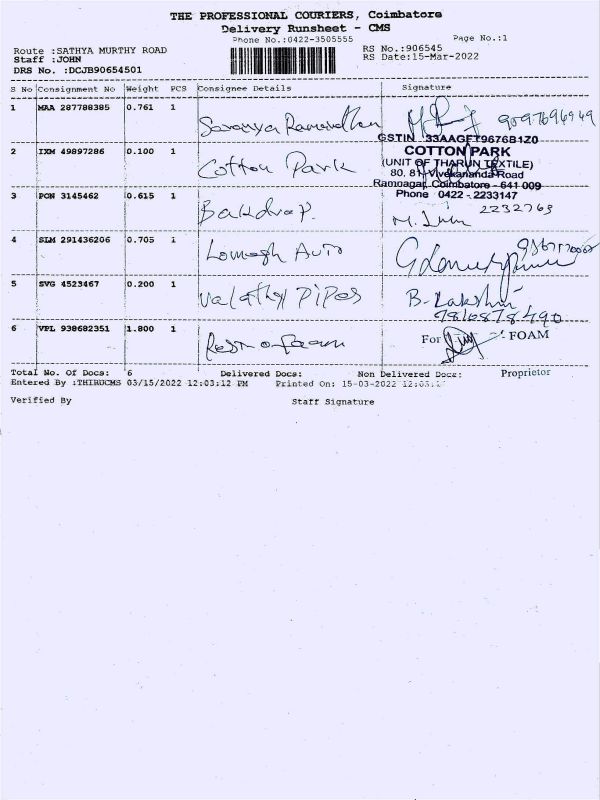 THE PROFESSIONAL COURIERS, Coimbatore
Delivery Runsheet - CMS
Phone No.:0422-3505555
Page No.:1
Route :SATHYA MURTHY ROAD
RS No.:906545
Staff :JOHN
RS Date:15-Mar-2022
DRS No. :DCJB90654501
S No Consignment No Weight PCS Consignee Details Signature
1 MAA 287788385 0.761 1
2 IXM 49897286 0.100 1 Cotton Park
GSTIN 33AAGFT9676B1Z0
COTTON PARK
(UNIT OF THARUN TEXTILE)
80, 81, Vivekananda Road
Ramnagar, Coimbatore - 641 009
Phone 0422 - 2233147
3 PON 3145462 0.615 1 2232763
4 SLM 291436206 0.705 1 Auto
5 SVG 4523467 0.200 1 Pipes B. Lakshmi
6 VPL 938682351 1.800 1
For FOAM
Proprietor
Total No. Of Docs: 6 Delivered Docs: Non Delivered Docs:
Entered By :THIRUCMS 03/15/2022 12:03:12 PM Printed On: 15-03-2022
Verified By Staff Signature